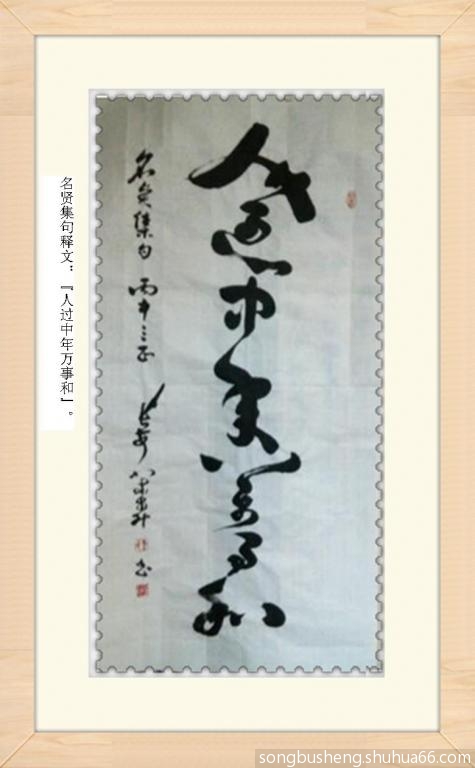 人过中年万事和
名贤集句 丙申 长安 宋步升 书
名贤集句释文：『人过中年万事和』。
songbusheng.shuhua66.com